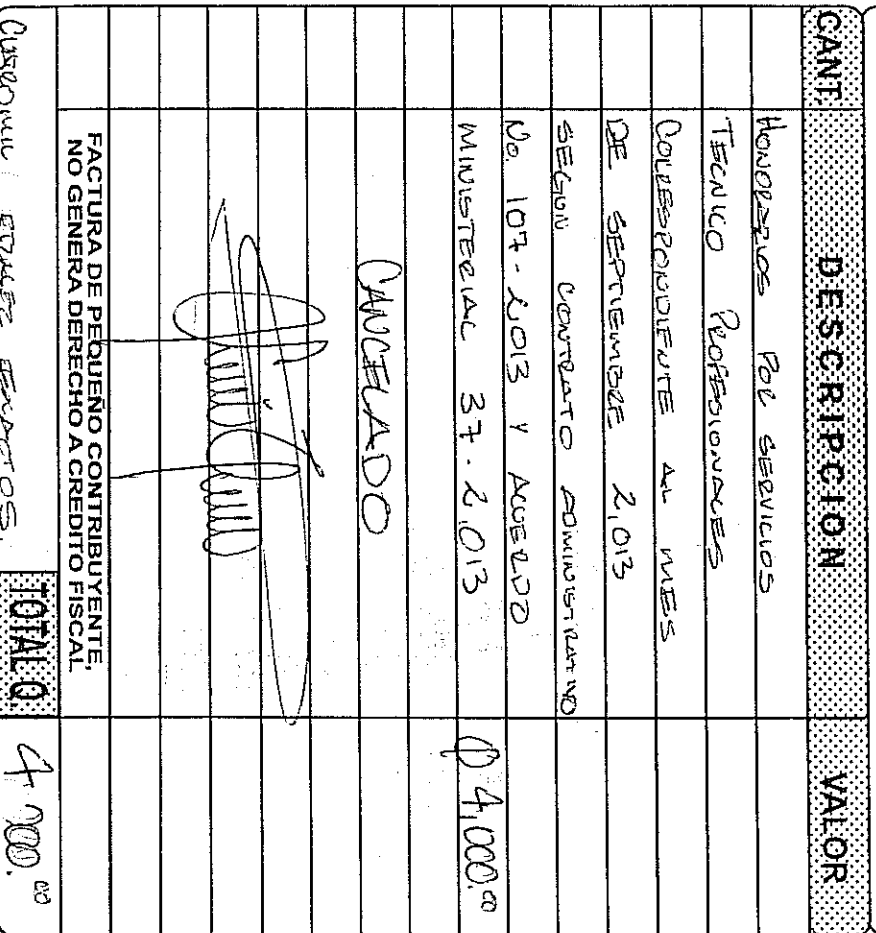 CANT. DESCRIPCION VALOR
HONORARIOS POR SERVICIOS
TECNICO PROFESIONALES
CORRESPONDIENTE AL MES
DE SEPTIEMBRE 2,013
SEGUN CONTRATO ADMINISTRATIVO
No. 107-2,013 Y ACUERDO
MINISTERIAL 37-2,013 Q 4,000.00
CANCELADO
FACTURA DE PEQUEÑO CONTRIBUYENTE,
NO GENERA DERECHO A CREDITO FISCAL
EXACTOS. TOTAL Q 4,000.00